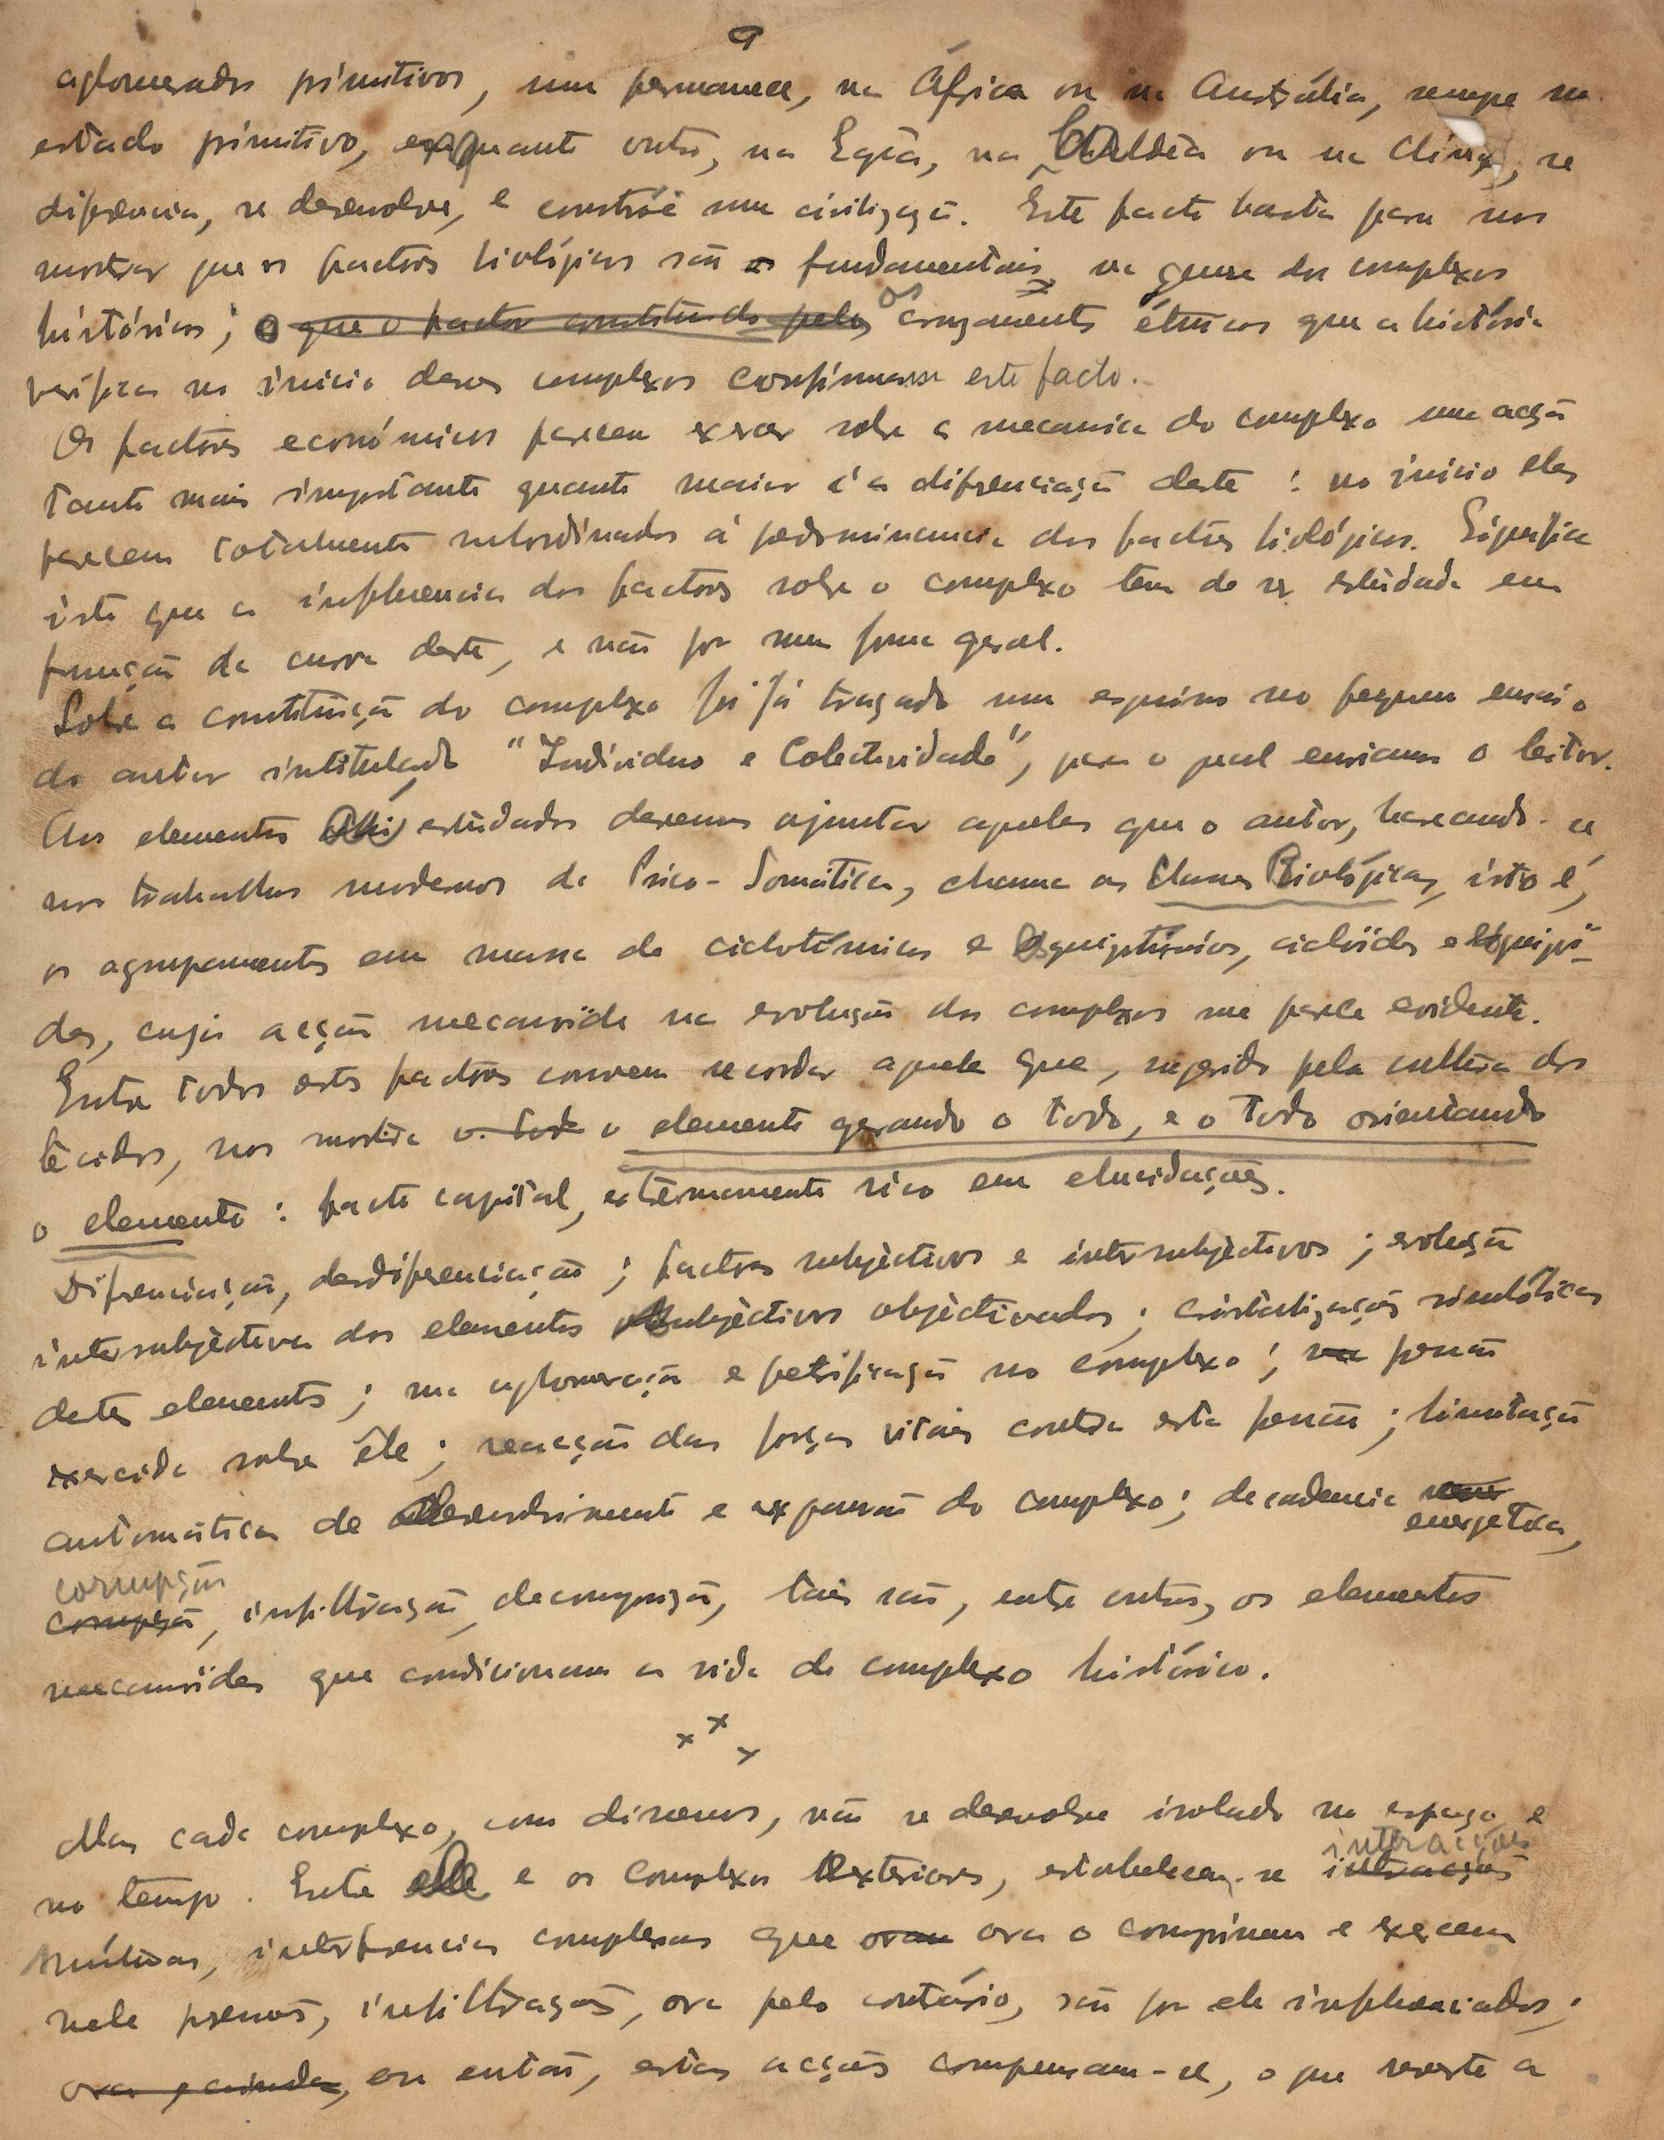 9
aglomerados primitivos, um permanece, na África ou na Austrália, sempre no
estado primitivo, enquanto outro, no Egito, na Caldêa ou na China, se
diferencia, se desenvolve, e constróe uma civilização. Este facto basta para nos
mostrar que os factores biológicos são os fundamentais na genese dos complexos
históricos; o que o factor constituido pelos os cruzamentos étnicos que a história
verifica no inicio desses complexos confirmam este facto.
Os factores económicos parecem exercer sobre a mecanica do complexo uma acção
tanto mais importante quanto maior é a diferenciação deste: no início eles
parecem totalmente subordinados á predominancia dos factores biológicos. Significa
isto que a influencia dos factores sobre o complexo tem de ser estudada em
função da curva deste, e não por uma forma geral.
Sobre a constituição do complexo foi já traçado um esquiço no pequeno ensaio
do autor intitulado "Indivíduo e Colectividade", para o qual enviamos o leitor.
Aos elementos ahi estudados devemos ajuntar aqueles que o autor, baseando-se
nos trabalhos modernos de Psico-Somática, chama as Classes Biológicas, isto é,
os agrupamentos em massa de ciclotímicos e esquizotímicos, ciclóides e esquizói-
des, cuja acção mecanóide na evolução dos complexos me parece evidente.
Entre todos estes factores convem recordar aquele que, sugerido pela cultura dos
tecidos, nos mostra o todo o elemento gerando o todo, e o todo orientando
o elemento: facto capital, extremamente rico em elucidações.
Diferenciação, desdiferenciação; factores subjectivos e intersubjectivos; evolução
intersubjectiva dos elementos subjectivos objectivados; cristalização simbólica
destes elementos; sua aglomeração e petrificação no complexo; sua pressão
exercida sobre êle; reacção das forças vitais contra esta pressão; limitação
automática de desenvolvimento e expansão do complexo; decadencia
energetica,
corrupção
corrupção, infiltração, decomposição, tais são, entre outros, os elementos
mecanóides que condicionam a vida do complexo histórico.
x x x
Mas cada complexo, como dissemos, não se desenvolve isolado no espaço e
interacções
no tempo. Entre ele e os complexos exteriores, estabelecem-se interacções
mútuas, interferencias complexas que oram ora o comprimem e exercem
nele pressões, infiltrações, ora pelo contrário, são por ele influenciados;
ora, e ainda, ou então, estas acções compensam-se, o que reveste a